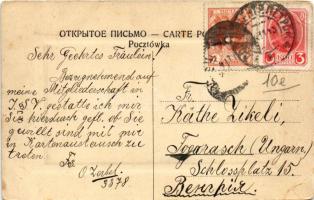 ОТКРЫТОЕ ПИСЬМО - CARTE PO
Pocztówka
Sehr Geehrtes Fräulein!
Bezugnehmend auf
meine Mitgliederschaft in
I.S.V. gestatte ich mir
Sie hierdurch gefl. ob Sie
gewillt sind mit mir
in Kartenaustausch zu
treten.
3378
3 3
10e
Fr.
Käthe Zikeli,
Fogarasch (Ungarn)
Schlossplatz 15.
Венгрия.